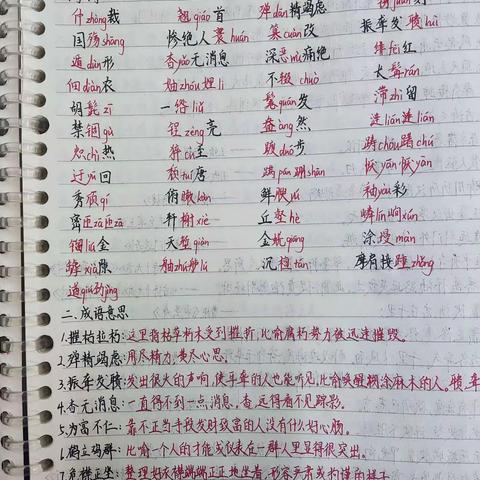 什zhòng裁 翘qiáo首 殚dān精竭虑
国殇shāng 惨绝人寰huán 篡cuàn改 振聋发聩kuì
遁dùn形 杳yǎo无消息 深恶wù痛绝 绯fēi红
佃diàn农 妯zhóu娌lǐ 不辍chuò 长髯rán
胡髭zī 一绺liǔ 鬓 发 滞zhì留
禁锢gù 锃zèng亮 盎àng然 涟lián涟lián
炽chì热 猝cù 踱duó步 踌chóu躇chú
迂yū回 颓tuí唐 蹒pán跚shān 恹yān恹yān
秀颀qí 俯瞰kàn 鲜腴yú 釉yòu彩
密匝zā匝zā 轩榭xiè 丘壑hè 嶙lín峋xún
镏liú金 天堑qiàn 金 qiāng 涂墁màn
罅xià隙 舳zhú舻lú 沉檀tán 摩肩接踵zhǒng
遒qiú劲jìng
二、成语意思
1.摧枯拉朽:这里指枯草朽木受到摧折,比喻腐朽势力被迅速摧毁。
2.殚精竭虑:用尽精力,费尽心思。
3.振聋发聩:发出很大的声响,使耳聋的人也能听见,比喻唤醒糊涂麻木的人。聩,聋
4.杳无消息:一直得不到一点消息。杳,远得看不见踪影。
5.为富不仁:靠不正当手段发财致富的人没有什么好心肠。
6.鹤立鸡群:比喻一个人的才能或仪表在一群人里显得很突出。
7.危襟正坐:整理好衣襟端端正正地坐着,形容严肃或拘谨的样子